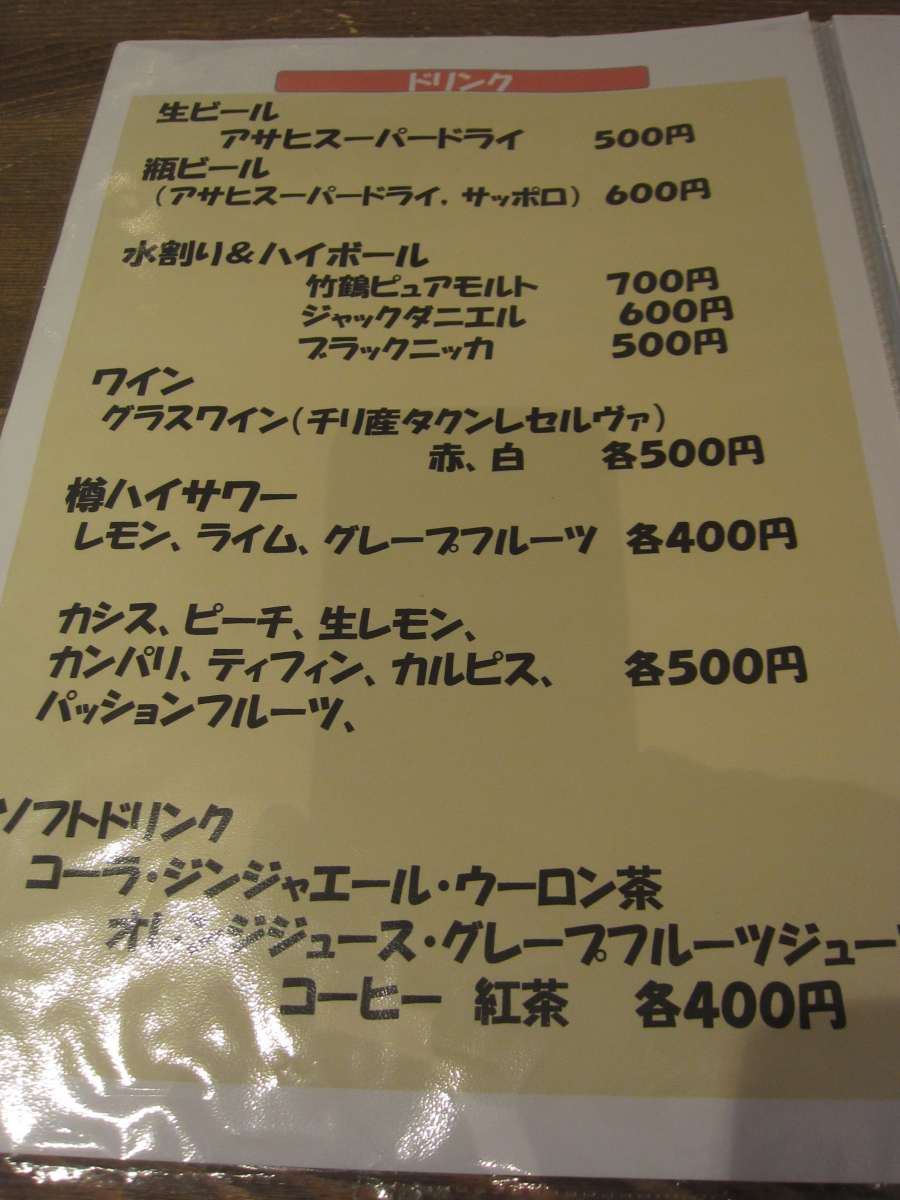 ドリンク
生ビール
アサヒスーパードライ 500円
瓶ビール
（アサヒスーパードライ．サッポロ） 600円
水割り＆ハイボール
竹鶴ピュアモルト 700円
ジャックダニエル 600円
ブラックニッカ 500円
ワイン
グラスワイン（チリ産タクンレセルヴァ）
赤、白 各500円
樽ハイサワー
レモン、ライム、グレープフルーツ 各400円
カシス、ピーチ、生レモン、
カンパリ、ティフィン、カルピス、 各500円
パッションフルーツ、
ソフトドリンク
コーラ・ジンジャエール・ウーロン茶
オレンジジュース・グレープフルーツジュー
コーヒー 紅茶 各400円